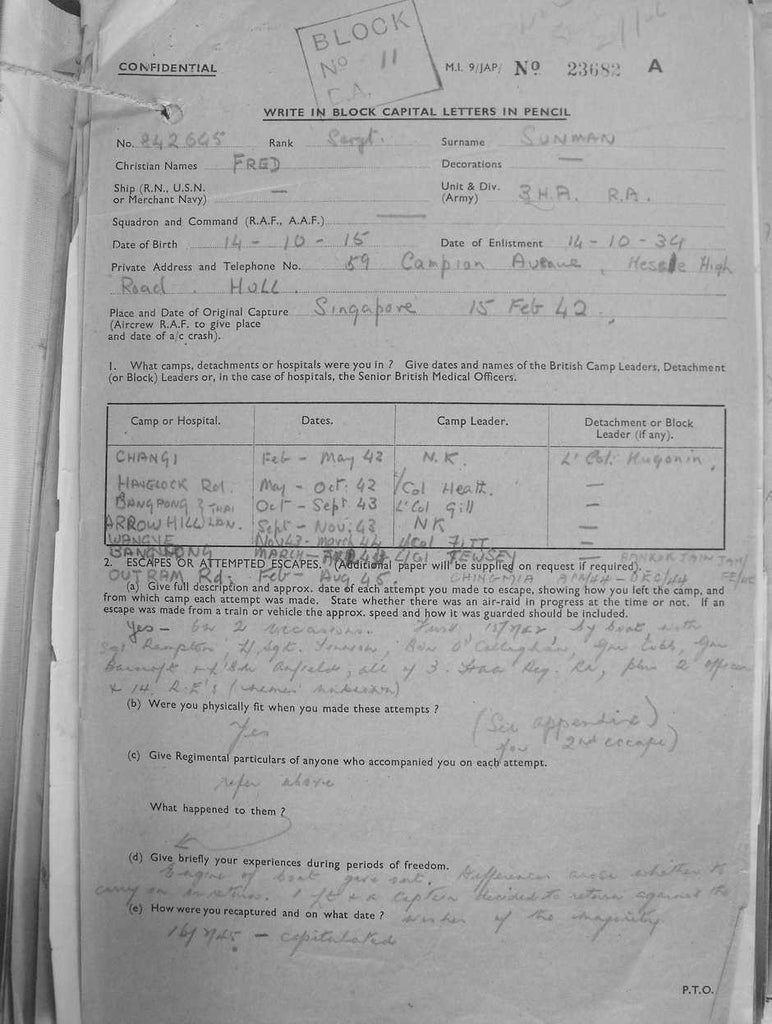 BLOCK
No 11
CONFIDENTIAL
M.I. 9/JAP/ No 23682 A
WRITE IN BLOCK CAPITAL LETTERS IN PENCIL
No. 842645 Rank Sergt. Surname SUNMAN
Christian Names FRED Decorations —
Ship (R.N., U.S.N. or Merchant Navy) — Unit & Div. (Army) 3 H.A. R.A.
Squadron and Command (R.A.F., A.A.F.) —
Date of Birth 14 - 10 - 15 Date of Enlistment 14 - 10 - 34
Private Address and Telephone No. 59 Campion Avenue, Hessle High
Road. HULL.
Place and Date of Original Capture Singapore 15 Feb 42.
(Aircrew R.A.F. to give place
and date of a/c crash).
1. What camps, detachments or hospitals were you in ? Give dates and names of the British Camp Leaders, Detachment
(or Block) Leaders or, in the case of hospitals, the Senior British Medical Officers.
Camp or Hospital. Dates. Camp Leader. Detachment or Block Leader (if any).
CHANGI Feb - May 42 N.K. Lt Col. Hugonin,
HAVELOCK Rd. May - Oct. 42 Col Heath. —
BANGPONG THAI Oct - Sept 43 Lt Col Gill —
ARROW HILL Sept - Nov: 43 NK —
WANGYE Nov 43 - March 44 —
MARCH
2. ESCAPES OR ATTEMPTED ESCAPES. (Additional paper will be supplied on request if required).
OUTRAM Rd. Feb - Aug 45.
(a) Give full description and approx. date of each attempt you made to escape, showing how you left the camp, and
from which camp each attempt was made. State whether there was an air-raid in progress at the time or not. If an
escape was made from a train or vehicle the approx. speed and how it was guarded should be included.
Yes - On 2 occasions. First by boat with
Sgt Rampton, L/Sgt. Bdr O'Callaghan, Gnr Cobb, Gnr
all of 3. Reg. RA, plus 2 officers
& 14 R.E's
(b) Were you physically fit when you made these attempts ?
Yes (See appendix
for 2nd escape)
(c) Give Regimental particulars of anyone who accompanied you on each attempt.
refer above
What happened to them ?
(d) Give briefly your experiences during periods of freedom.
Engine of boat gave out. Differences arose whether to
carry on or return. 1 Lt & a Captain decided to return against the
(e) How were you recaptured and on what date ? wishes of the majority
— capitulated
P.T.O.